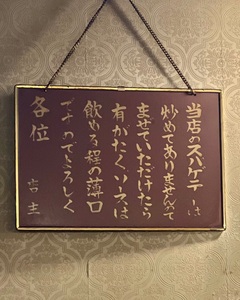 当店のスパゲテーは
炒めてありませんで
ませていただけたら
有がたくソースは
飲める程の薄口
のでよろしく
各位 店主